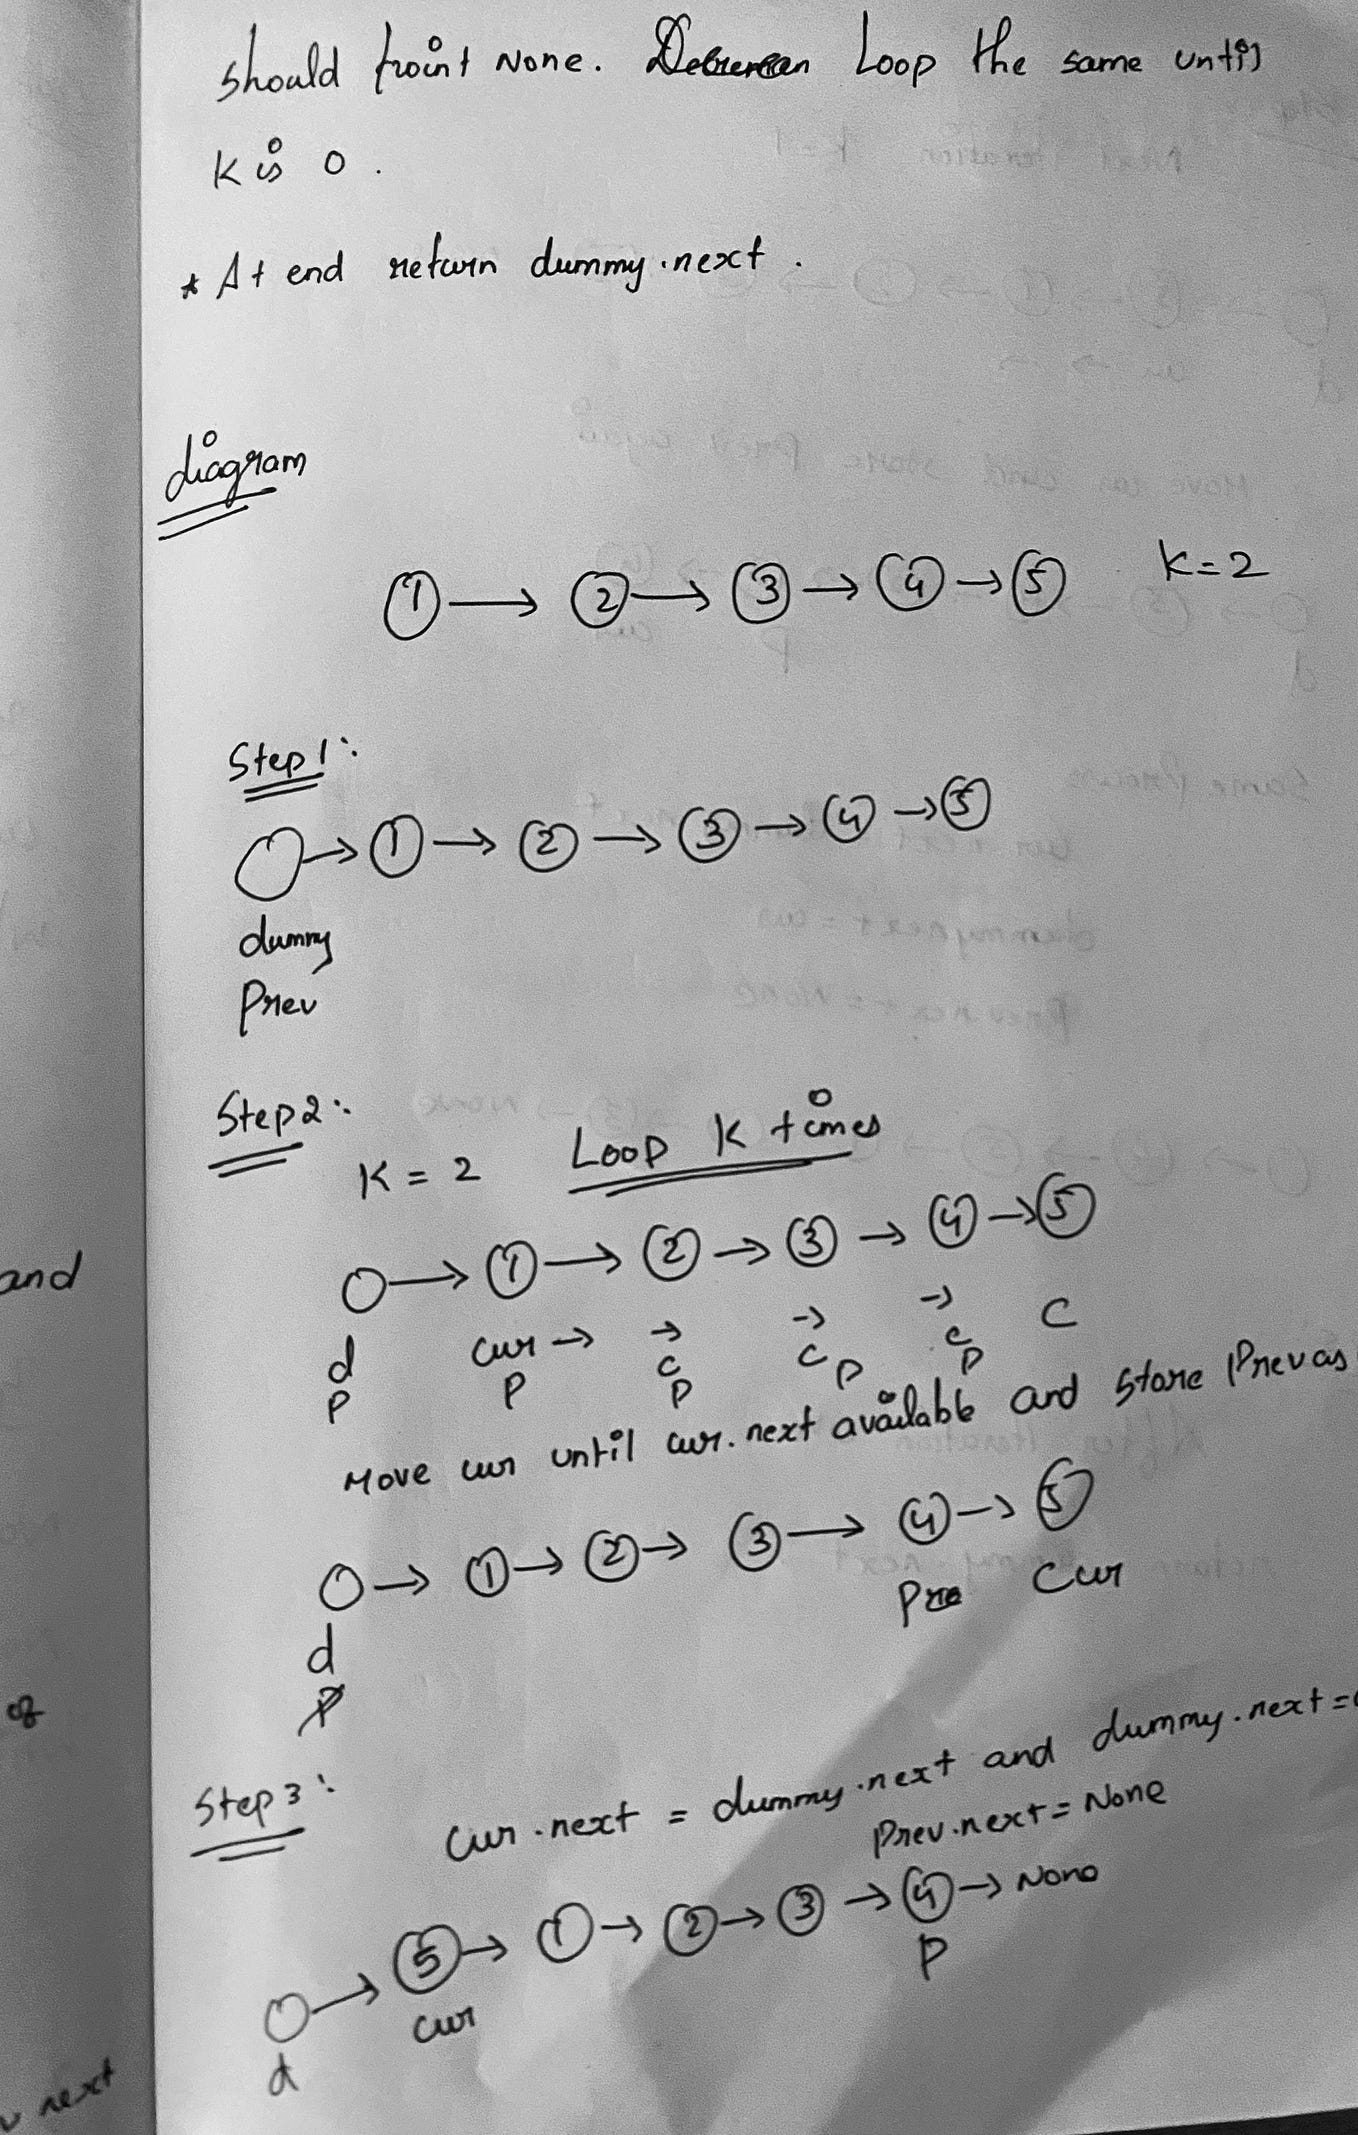 should point None. Loop the same until
K is 0.
* At end return dummy.next.
diagram
1 → 2 → 3 → 4 → 5 K=2
Step 1:
→ 1 → 2 → 3 → 4 → 5
dummy
Prev
Step 2:
K = 2 Loop K times
→ 1 → 2 → 3 → 4 → 5
d cur → → → → C
P P C C C
P P P
Move cur until cur.next available and store Prev as
→ 1 → 2 → 3 → 4 → 5
Cur
d
P
Step 3:
cur.next = dummy.next and dummy.next =
Prev.next = None
→ 5 → 1 → 2 → 3 → 4 → None
d cur P
and
of
next